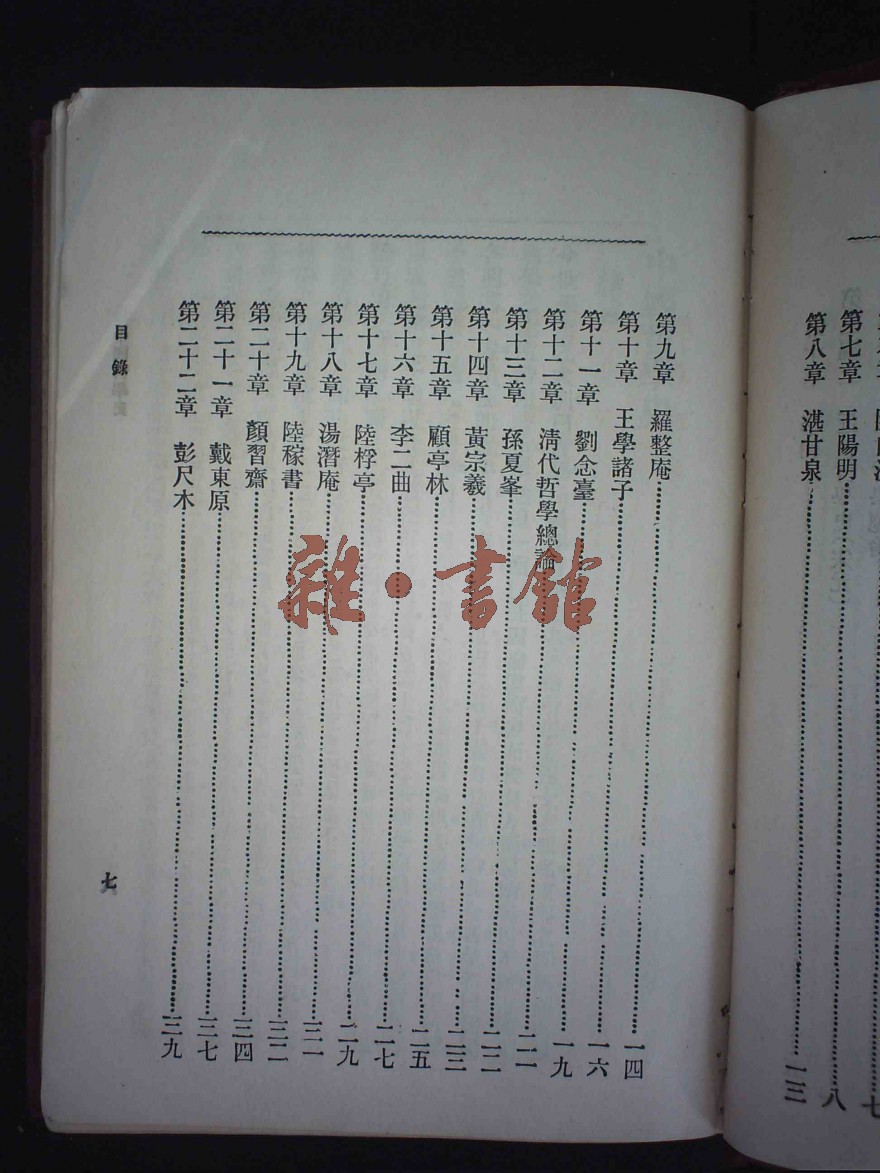 第七章 王陽明 八
第八章 湛甘泉 一三
第九章 羅整庵 一四
第十章 王學諸子 一六
第十一章 劉念臺 一九
第十二章 清代哲學總論 二一
第十三章 孫夏峯 二二
第十四章 黃宗羲 二三
第十五章 顧亭林 二五
第十六章 李二曲 二七
第十七章 陸桴亭 二九
第十八章 湯潛庵 三一
第十九章 陸稼書 三二
第二十章 顏習齋 三四
第二十一章 戴東原 三七
第二十二章 彭尺木 三九
目錄
七
雜·書館